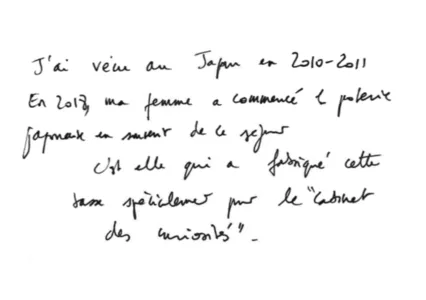 J'ai vécu au Japon en 2010-2011
En 2017, ma femme a commencé la poterie
japonaise en souvenir de ce séjour
c'est elle qui a fabriqué cette
tasse spécialement pour le "Cabinet
des curiosités".